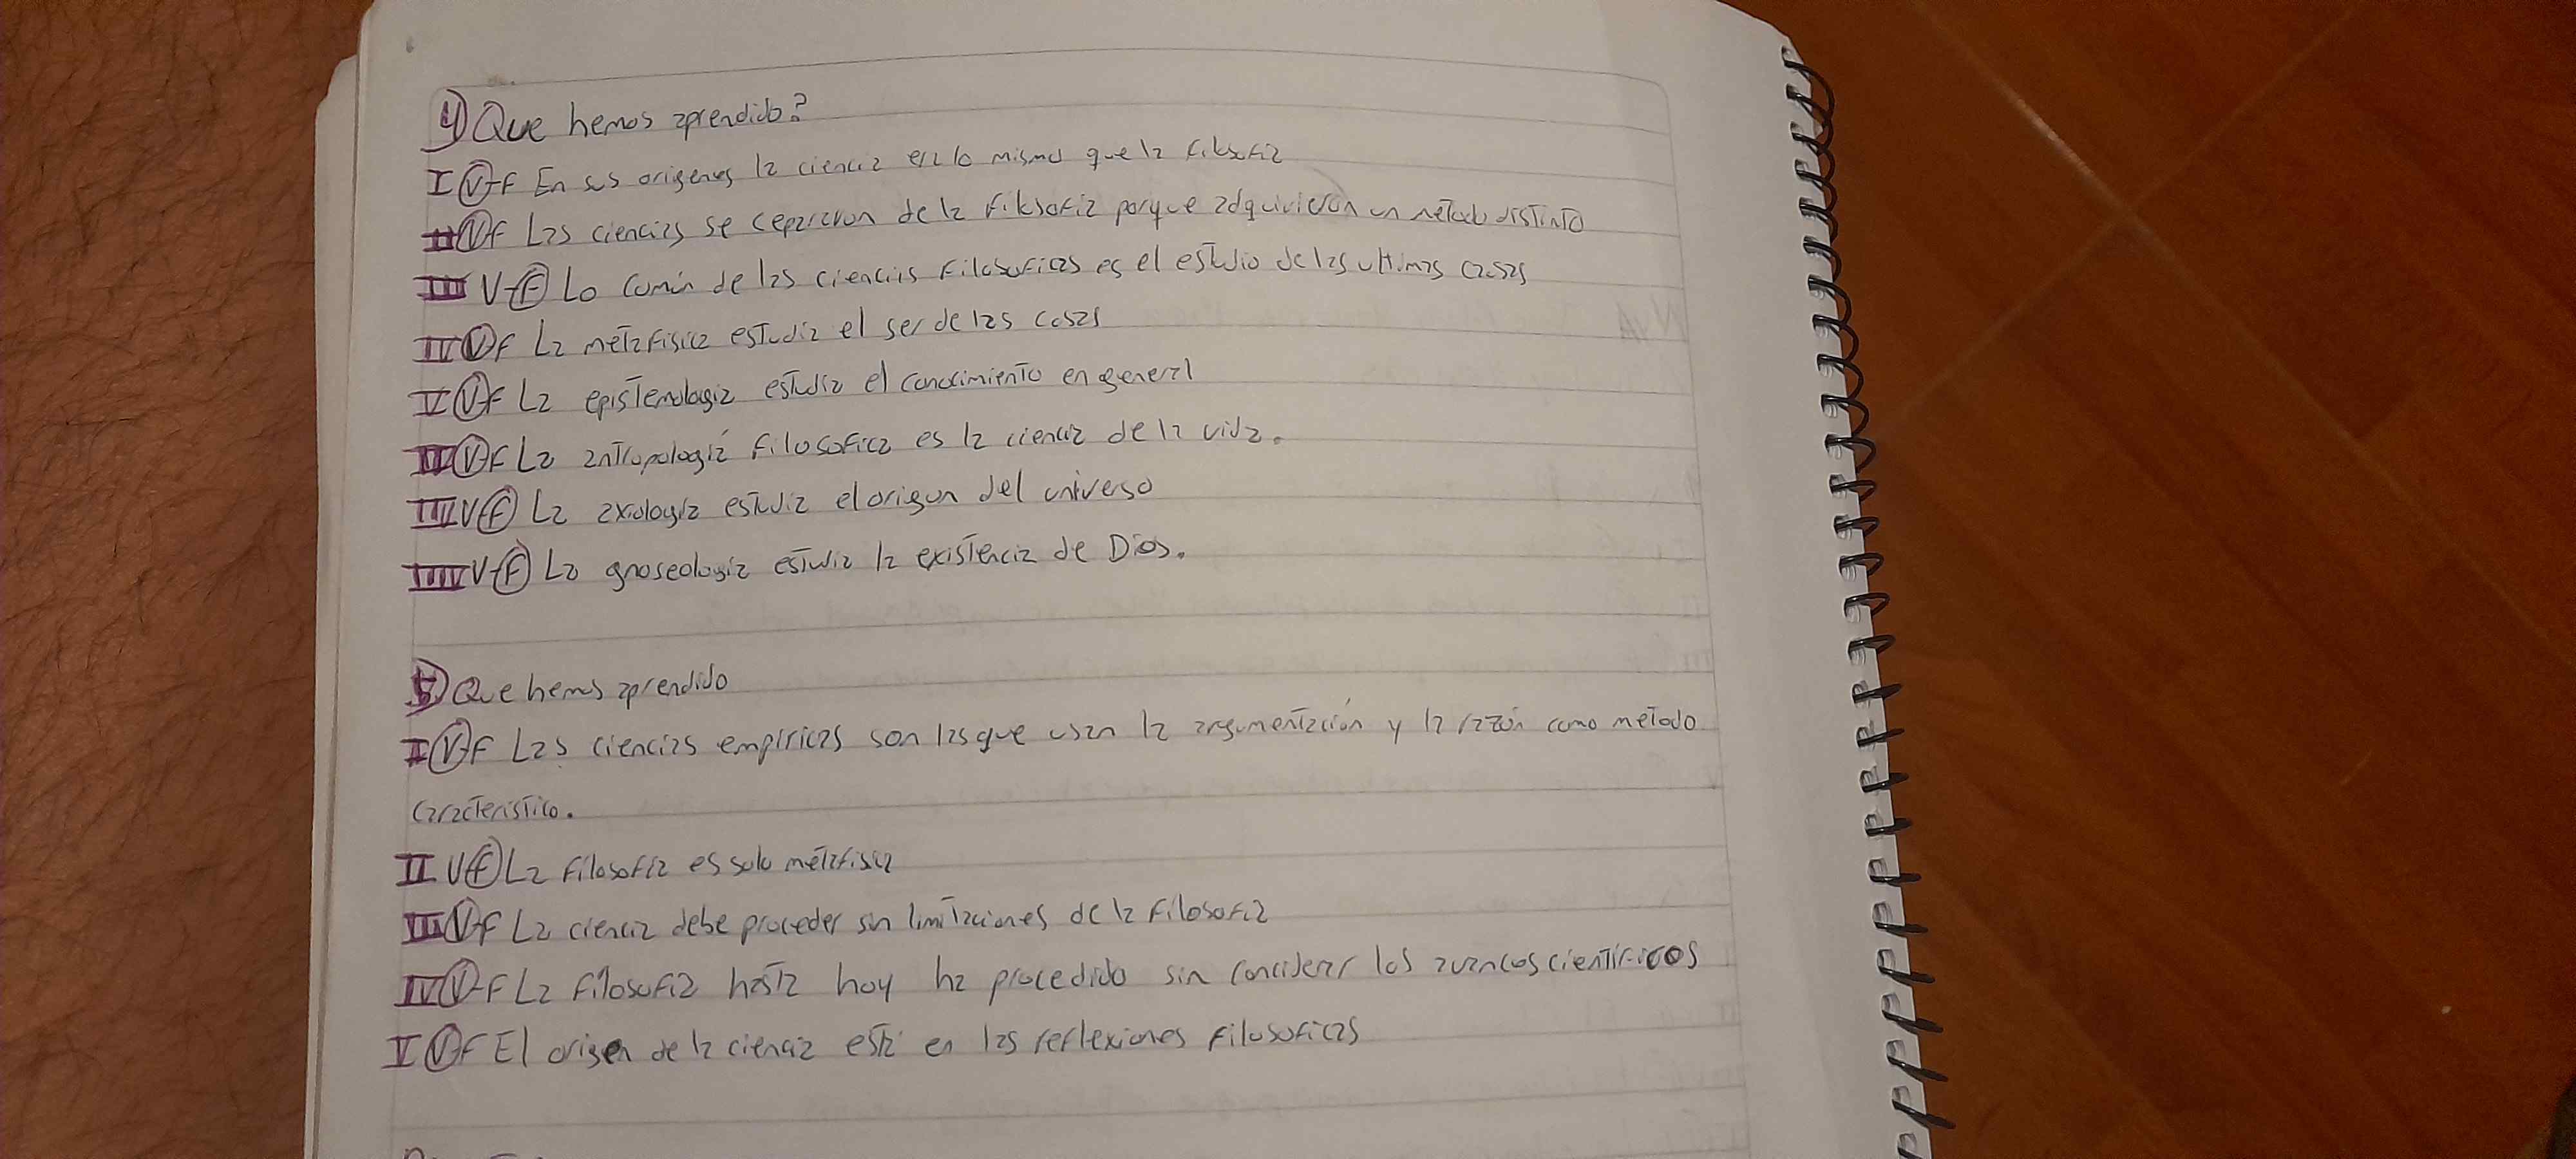 4) Que hemos aprendido?
I V-F En sus origenes la ciencia era lo mismo que la filosofia
II V-F Las ciencias se ceparavon de la filosofia porque adquivieron un metodo distinto
III V-F Lo comun de las ciencias filosoficas es el estudio de las ultimas casas
IV V-F La metafisica estudia el ser de las cosas
V V-F La epistemologia estudia el conocimiento en general
VI V-F La antropologia filosofica es la ciencia de la vida.
VII V-F La axiologia estudia el origen del universo
VIII V-F La gnoseologia estudia la existencia de Dios.
5) Que hemos aprendido
I V-F Las ciencias empiricas son las que usan la argumentación y la razón como metodo
caracteristico.
II V-F La filosofia es solo metafisica
III V-F La ciencia debe proceder sin limitaciones de la filosofia
IV V-F La filosofia hasta hoy ha procedido sin conciderar los avances cientificos
V V-F El origen de la ciencia está en las reflexiones filosoficas